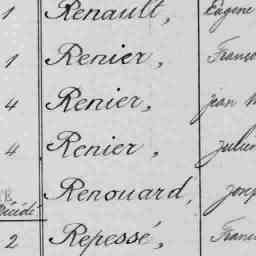 1 Renault, Eugène
1 Renier, Franço
4 Renier, jean
4 Renier, Julien
Renouard, josep
Décédé
2 Repessé, Franc